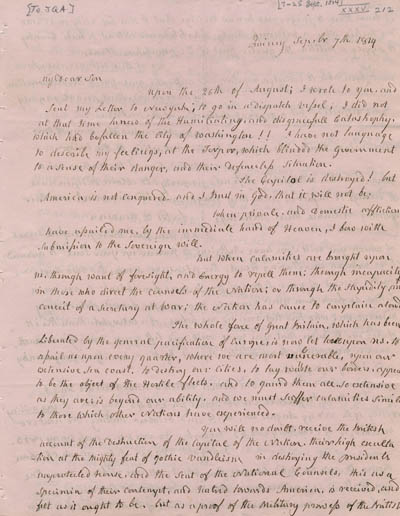 [To JQA]
[7-23 Sept. 1814]
XXXV, 212
Quincy, Sepbr 7th 1814
my dear Son
upon the 26th of August; I wrote to you, and
sent my Letter to Newyork; to go in a dispatch vessel, I did not
at that time know of the Humiliating, and disgracefull Catastrophy,
which had befallen the city of Washington!! I have not language
to describe my feelings, at the Torpor, which blinded the Government
to a sense of their danger, and their defenceless Situation.
The Capitol is destroyed! but
America, is not conquered and I trust in God, that it will not be.
When private, and domestic afflictions
have assailed me, by the immediate hand of Heaven, I bow with
submission to the Sovereign will.
but when calamities are brought upon
us, through want of foresight, and Energy to repell them; through incapacity
in those who direct the counsels of the Nation; or through the Stupidity, and
conceit of a Secretary at War; the Nation has cause to complain aloud
The whole force of Great Britain, which has been
Liberated by the general pacification of Europe, is now let loose upon us. to
assail us upon every quarter, where we are most vulnerable, upon our
extensive Sea coast. to destroy our cities, to lay waste our borders, appears
to be the object of the Hostile fleets. and to guard them all so extensive
as they are, is beyond our ability. and we must suffer calamities similar
to those which other Nations have experienced.
You will no doubt, receive the British
account of the destruction of the capital of the Nation. their high exulta
tion at the mighty feat of gothic vandlism in destroying the presidents
unprotected house, and the seat of the National Counsels, this as a
specimen of their contempt, and hatred towards America, is received, and
felt as it ought to be. but as a proof of the Military prowess of the British